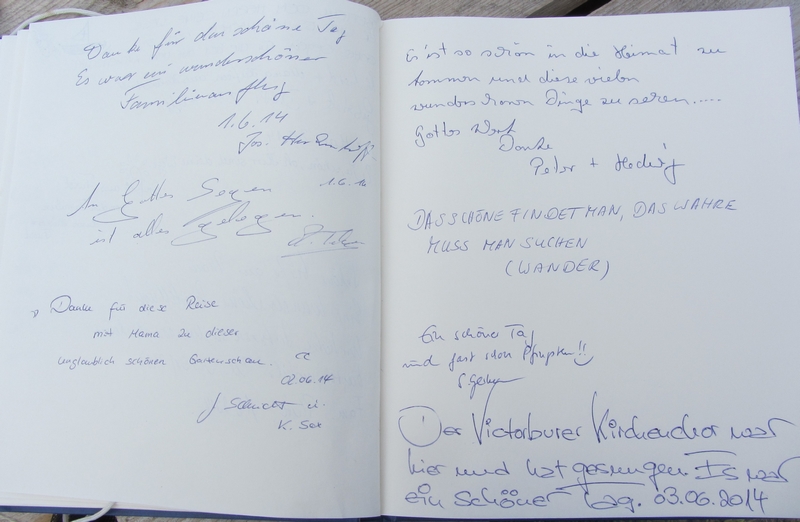 Danke für den schöne Tag
Es war ein wunderschöner
Familienausflug
1.6.14
Jos.
1.6.14
An Gottes Segen
ist alles gelegen.
Danke für diese Reise
mit Mama zu dieser
unglaublich schönen Gartenschau.
02.06.14
J. Schucht u.
K. Sex
Es ist so schön in die Heimat zu
kommen und diese vielen
wunderschönen Dinge zu sehen.....
Gottes Werk
Danke
Peter + Hedwig
DAS SCHÖNE FINDET MAN, DAS WAHRE
MUSS MAN SUCHEN
(WANDER)
Ein schöner Tag
und fast schon Pfingsten!!
Der Victorburer Kirchenchor war
hier und hat gesungen Es war
ein schöner Tag. 03.06.2014